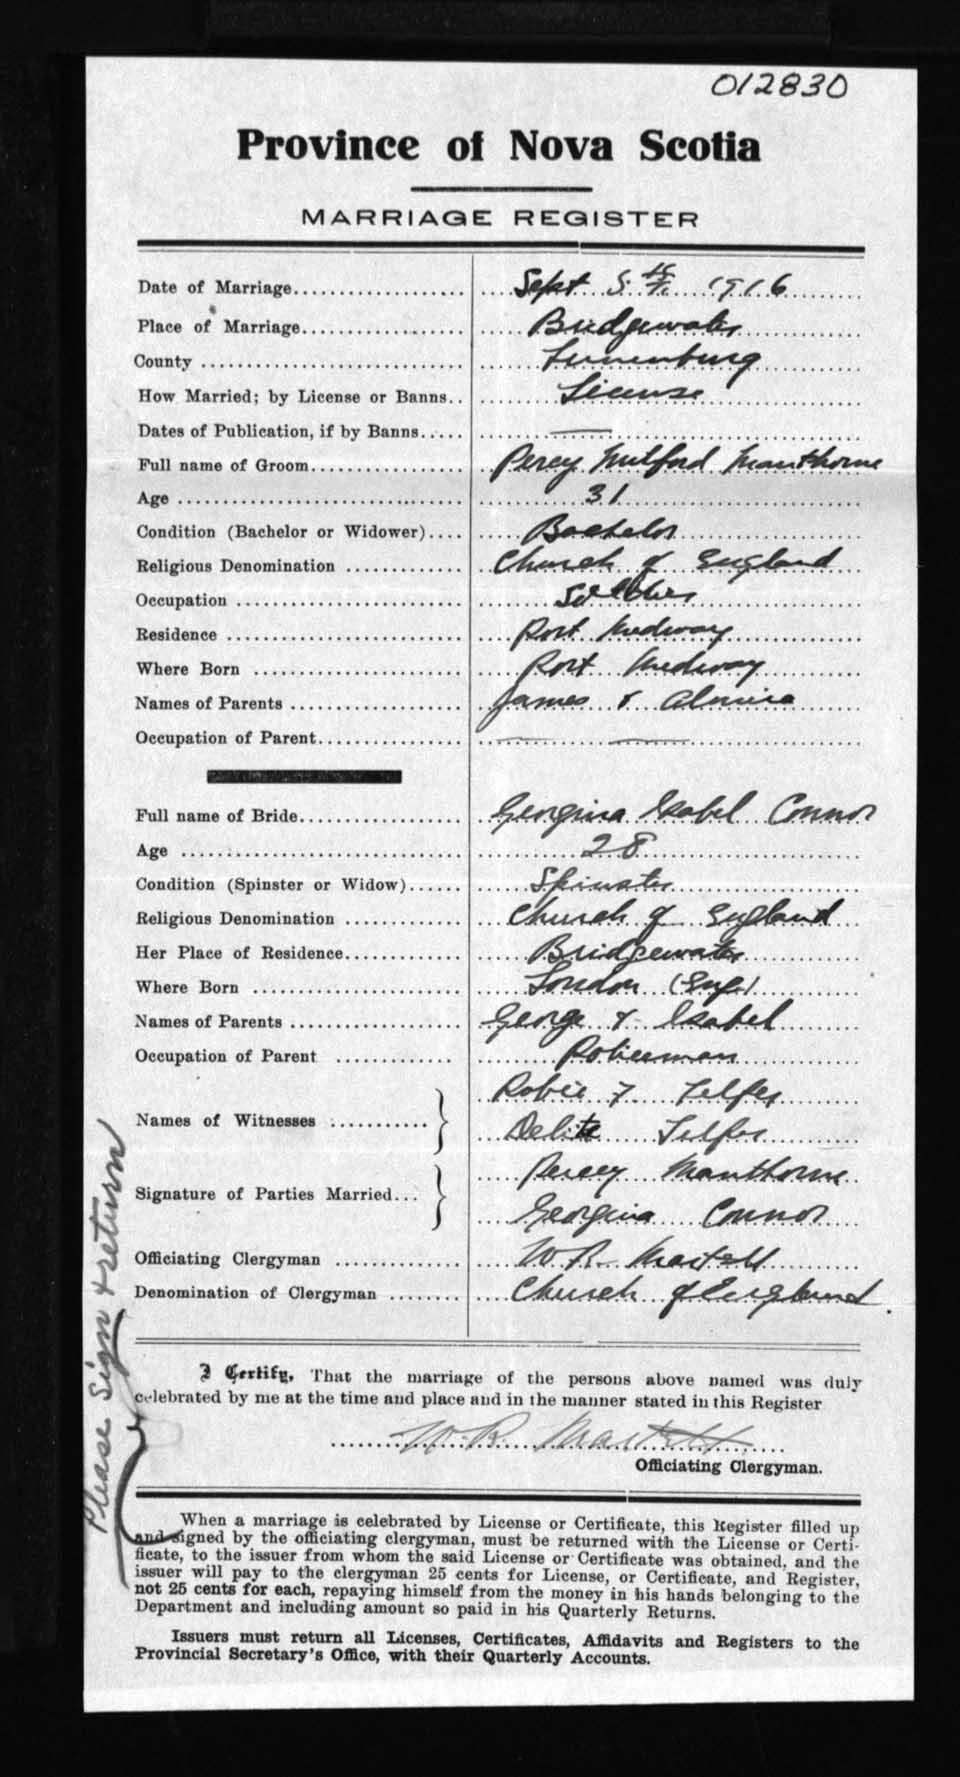 012830
Province of Nova Scotia
MARRIAGE REGISTER
Date of Marriage.................... Sept 5th 1916
Place of Marriage.................. Bridgewater
County ............................. Lunenburg
How Married; by License or Banns.. License
Dates of Publication, if by Banns..... —
Full name of Groom................. Percy Milford Manthorne
Age ............................... 31
Condition (Bachelor or Widower).... Bachelor
Religious Denomination ............. Church of England
Occupation ......................... Soldier
Residence .......................... Port Medway
Where Born ........................ Port Medway
Names of Parents ................... James & Almira
Occupation of Parent................ — —
Full name of Bride.................. Georgina Isabel Connor
Age ............................... 28
Condition (Spinster or Widow)...... Spinster
Religious Denomination ............. Church of England
Her Place of Residence............. Bridgewater
Where Born ........................ London (Eng)
Names of Parents ................... George & Isabel
Occupation of Parent ............. Policeman
Names of Witnesses ........... } Robie F Telfer
Delite Telfer
Signature of Parties Married... } Percey Manthorne
Georgina Connor
Officiating Clergyman .............. W. R. Martell
Denomination of Clergyman ........ Church of England.
I Certify, That the marriage of the persons above named was duly
celebrated by me at the time and place and in the manner stated in this Register
W. R. Martell
Officiating Clergyman.
Please Sign & return
When a marriage is celebrated by License or Certificate, this Register filled up
and signed by the officiating clergyman, must be returned with the License or Certi-
ficate, to the issuer from whom the said License or Certificate was obtained, and the
issuer will pay to the clergyman 25 cents for License, or Certificate, and Register,
not 25 cents for each, repaying himself from the money in his hands belonging to the
Department and including amount so paid in his Quarterly Returns.
Issuers must return all Licenses, Certificates, Affidavits and Registers to the
Provincial Secretary's Office, with their Quarterly Accounts.